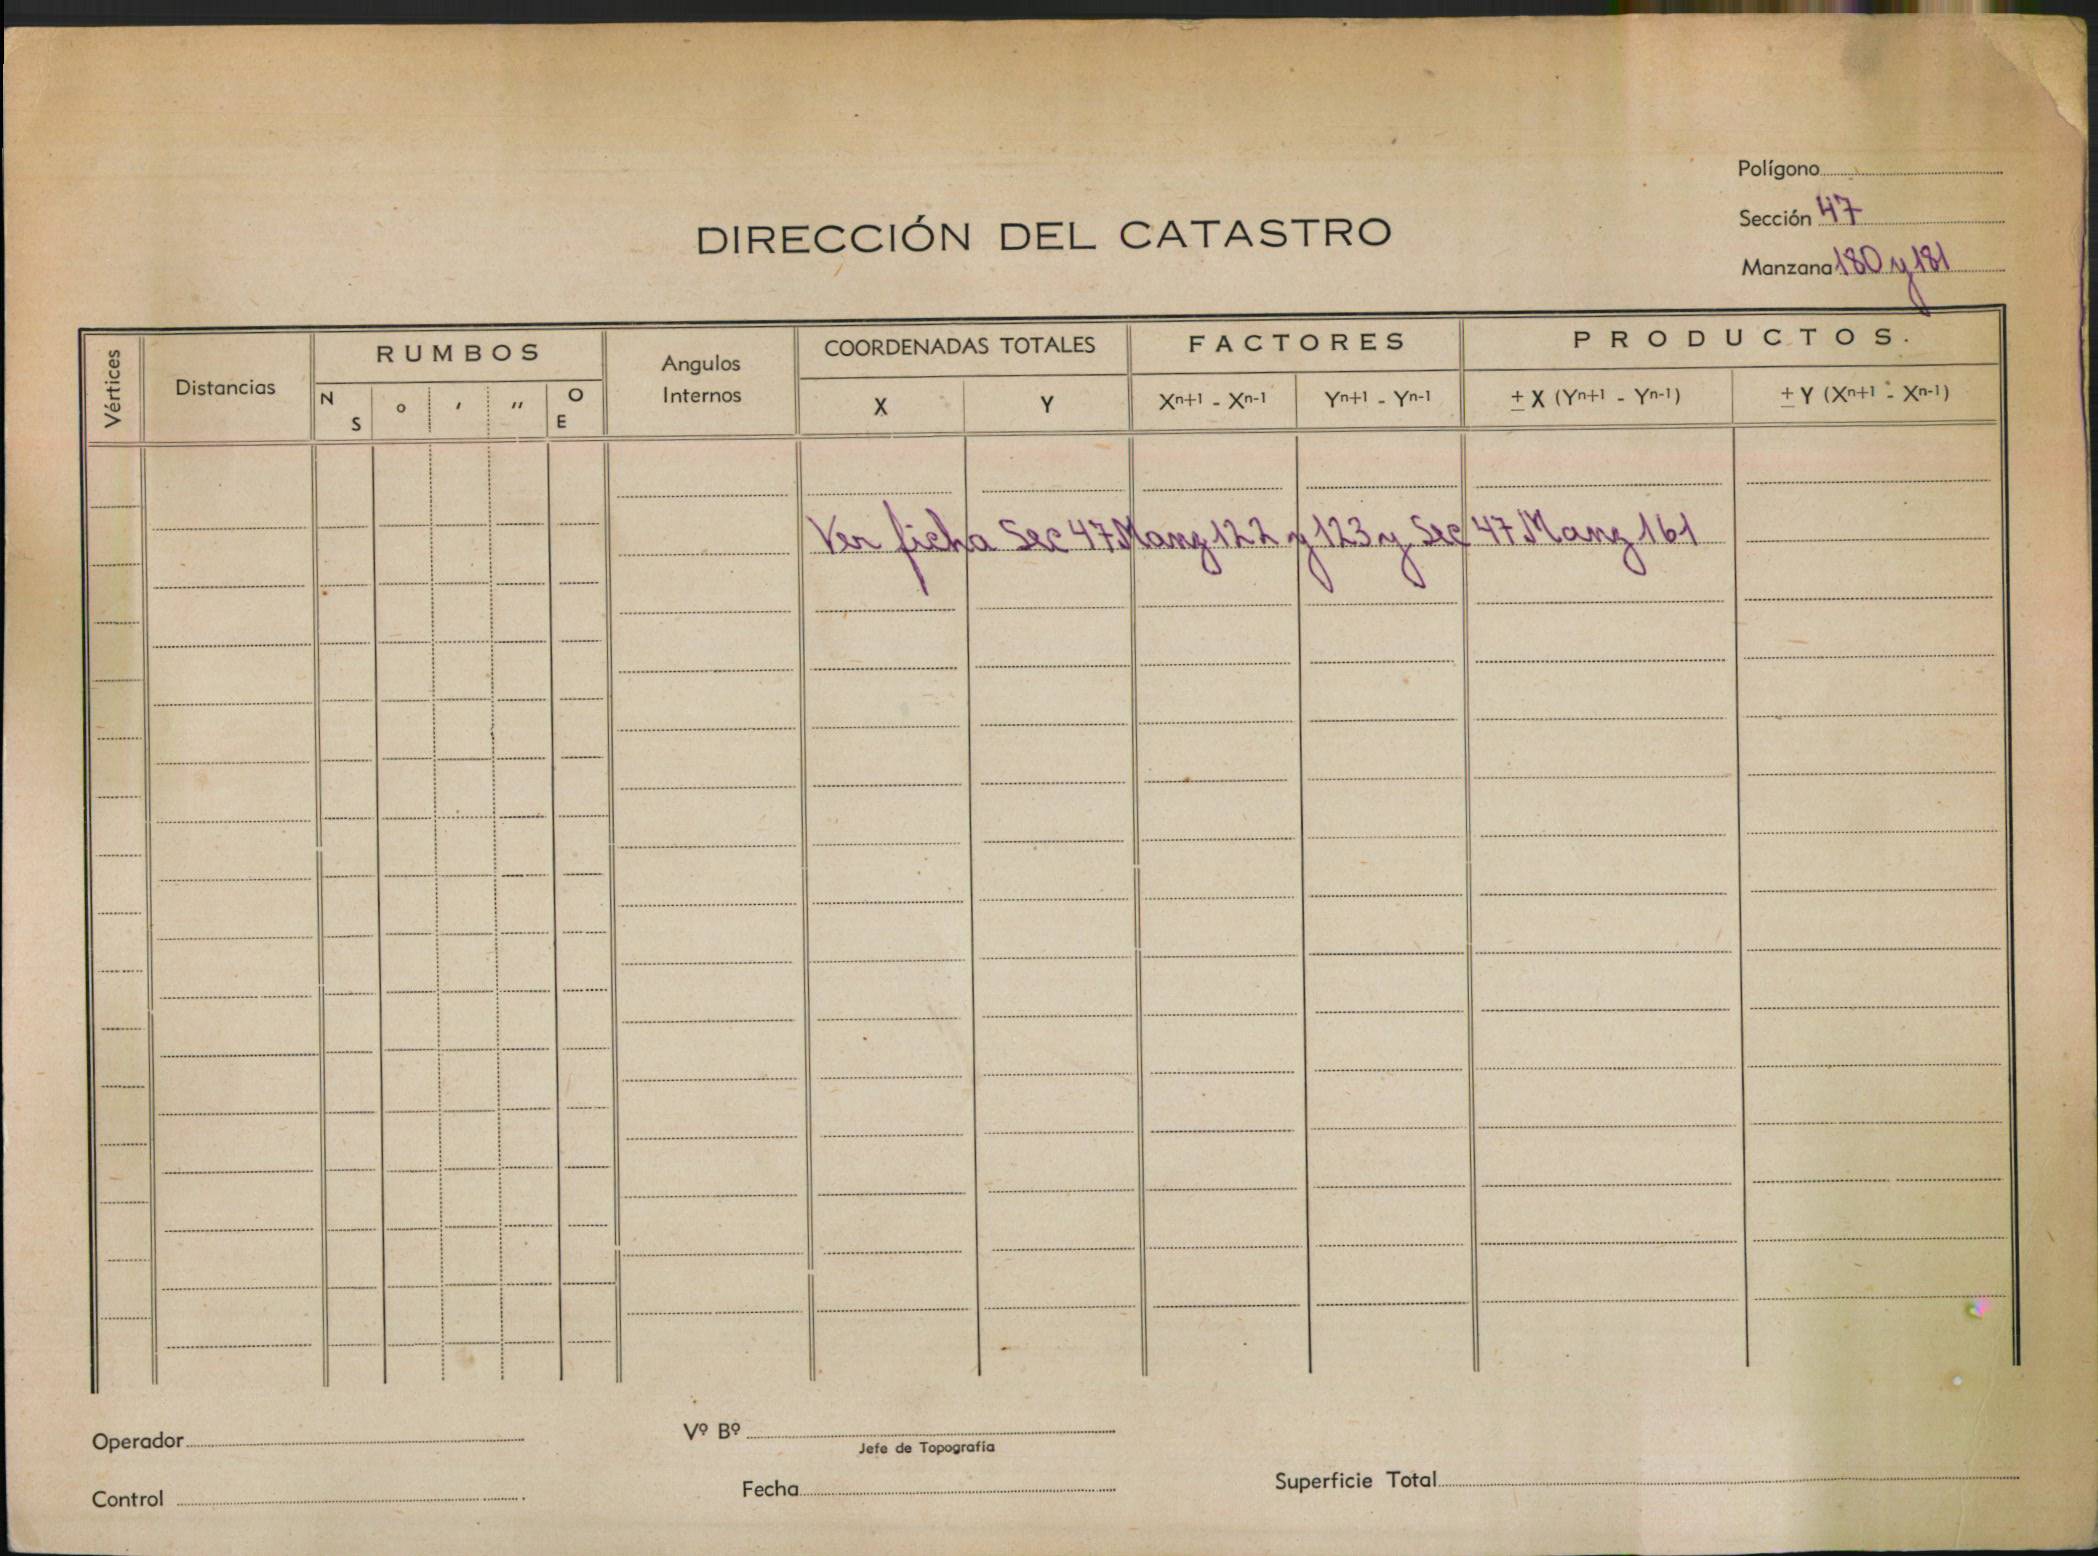 Polígono
Sección 47
Manzana 180 y 181
DIRECCIÓN DEL CATASTRO
Vértices
Distancias
RUMBOS
N S
o
'
"
O E
Angulos Internos
COORDENADAS TOTALES
X
Y
FACTORES
Xn+1 - Xn-1
Yn+1 - Yn-1
PRODUCTOS.
± X (Yn+1 - Yn-1)
± Y (Xn+1 - Xn-1)
Ver ficha Sec 47 Manz 122 y 123 y Sec 47 Manz 161
Operador
Vº Bº
Jefe de Topografía
Control
Fecha
Superficie Total